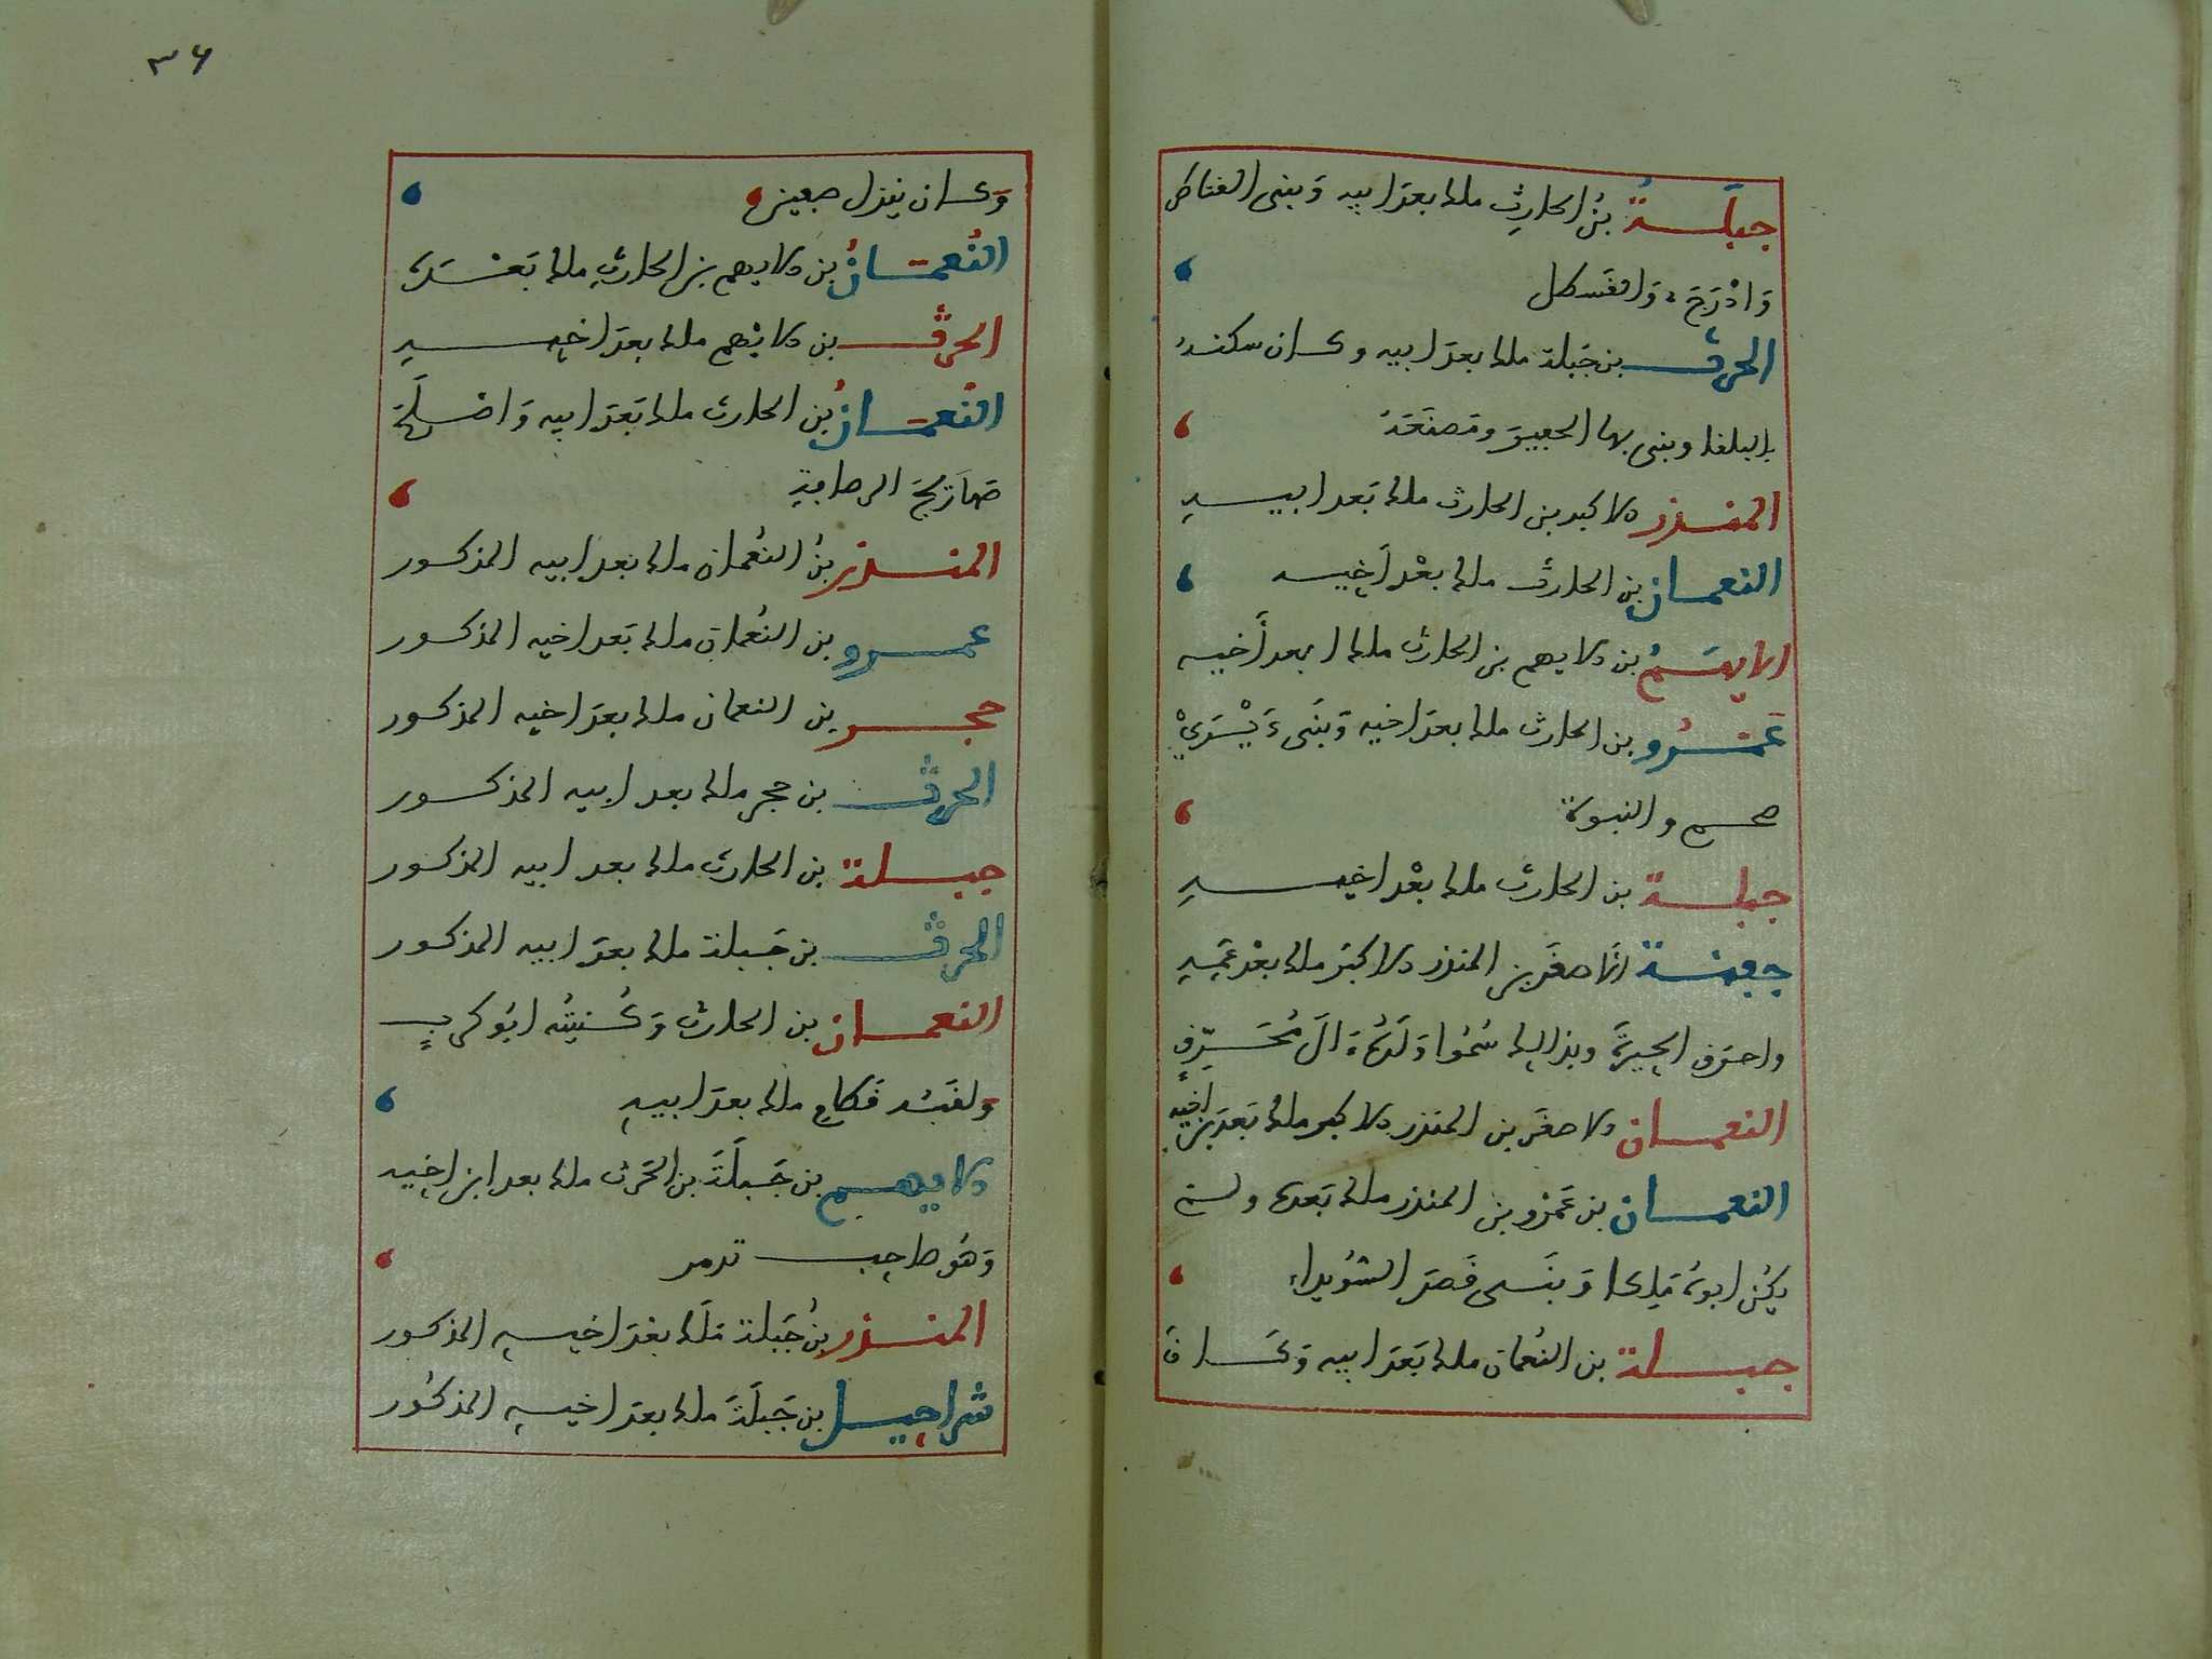 جبلة بن الحارث ملك بعد ابيه وبنى القناطر
وادرج والقسطل
الحرث بن جبلة ملك بعد ابيه وكان سكنه
بالبلقا وبنى بها الحفير ومصنعه
المنذر الاكبر بن الحارث ملك بعد ابيه
النعمان بن الحارث ملك بعد أخيه
الايهم بن الايهم بن الحارث ملك بعد أخيه
عمرو بن الحارث ملك بعد اخيه وبنى ديري
و النبوة
جبلة بن الحارث ملك بعد اخيه
جفنة الاصغر بن المنذر الاكبر ملك بعد عمه
واحرق الحيرة وبذالك سموا ولده ال محرق
النعمان الاصغر بن المنذر الاكبر ملك بعد بن اخيه
النعمان بن عمرو بن المنذر ملك بعده ولم
يكن ابوه ملكا وبنى قصر السويداء
جبلة بن النعمان ملك بعد ابيه وكان
٣٤
وكان ينزل بصفين
النعمان بن الايهم بن الحارث ملك بعده
الحرث بن الايهم ملك بعد اخيه
النعمان بن الحارث ملك بعد ابيه واصلح
صهاريج الرصافة
المنذر بن النعمان ملك بعد ابيه المذكور
عمرو بن النعمان ملك بعد اخيه المذكور
حجر بن النعمان ملك بعد اخيه المذكور
الحرث بن حجر ملك بعد ابيه المذكور
جبلة بن الحارث ملك بعد ابيه المذكور
الحرث بن جبلة ملك بعد ابيه المذكور
النعمان بن الحارث وكنيته ابو كرب
ولقبه قطام ملك بعد ابيه
الايهم بن جبلة بن الحرث ملك بعد ابن اخيه
وهو صاحب تدمر
المنذر بن جبلة ملك بعد اخيه المذكور
شراحيل بن جبلة ملك بعد اخيه المذكور